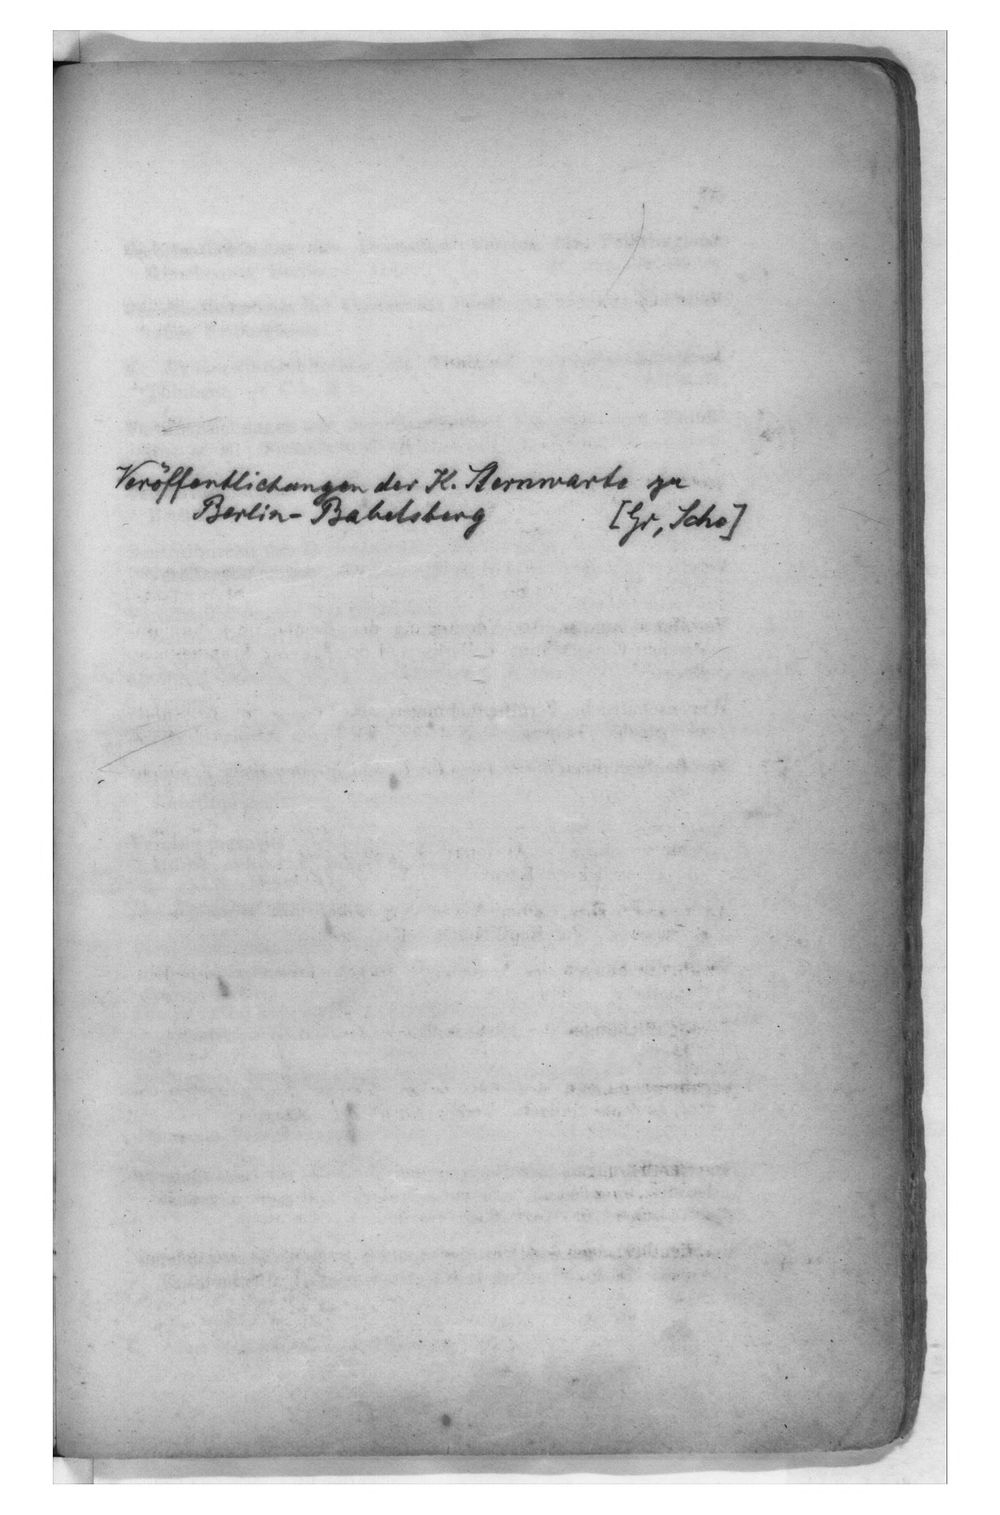 Veröffentlichungen der K. Sternwarte zu
Berlin-Babelsberg [Gr, Scho]